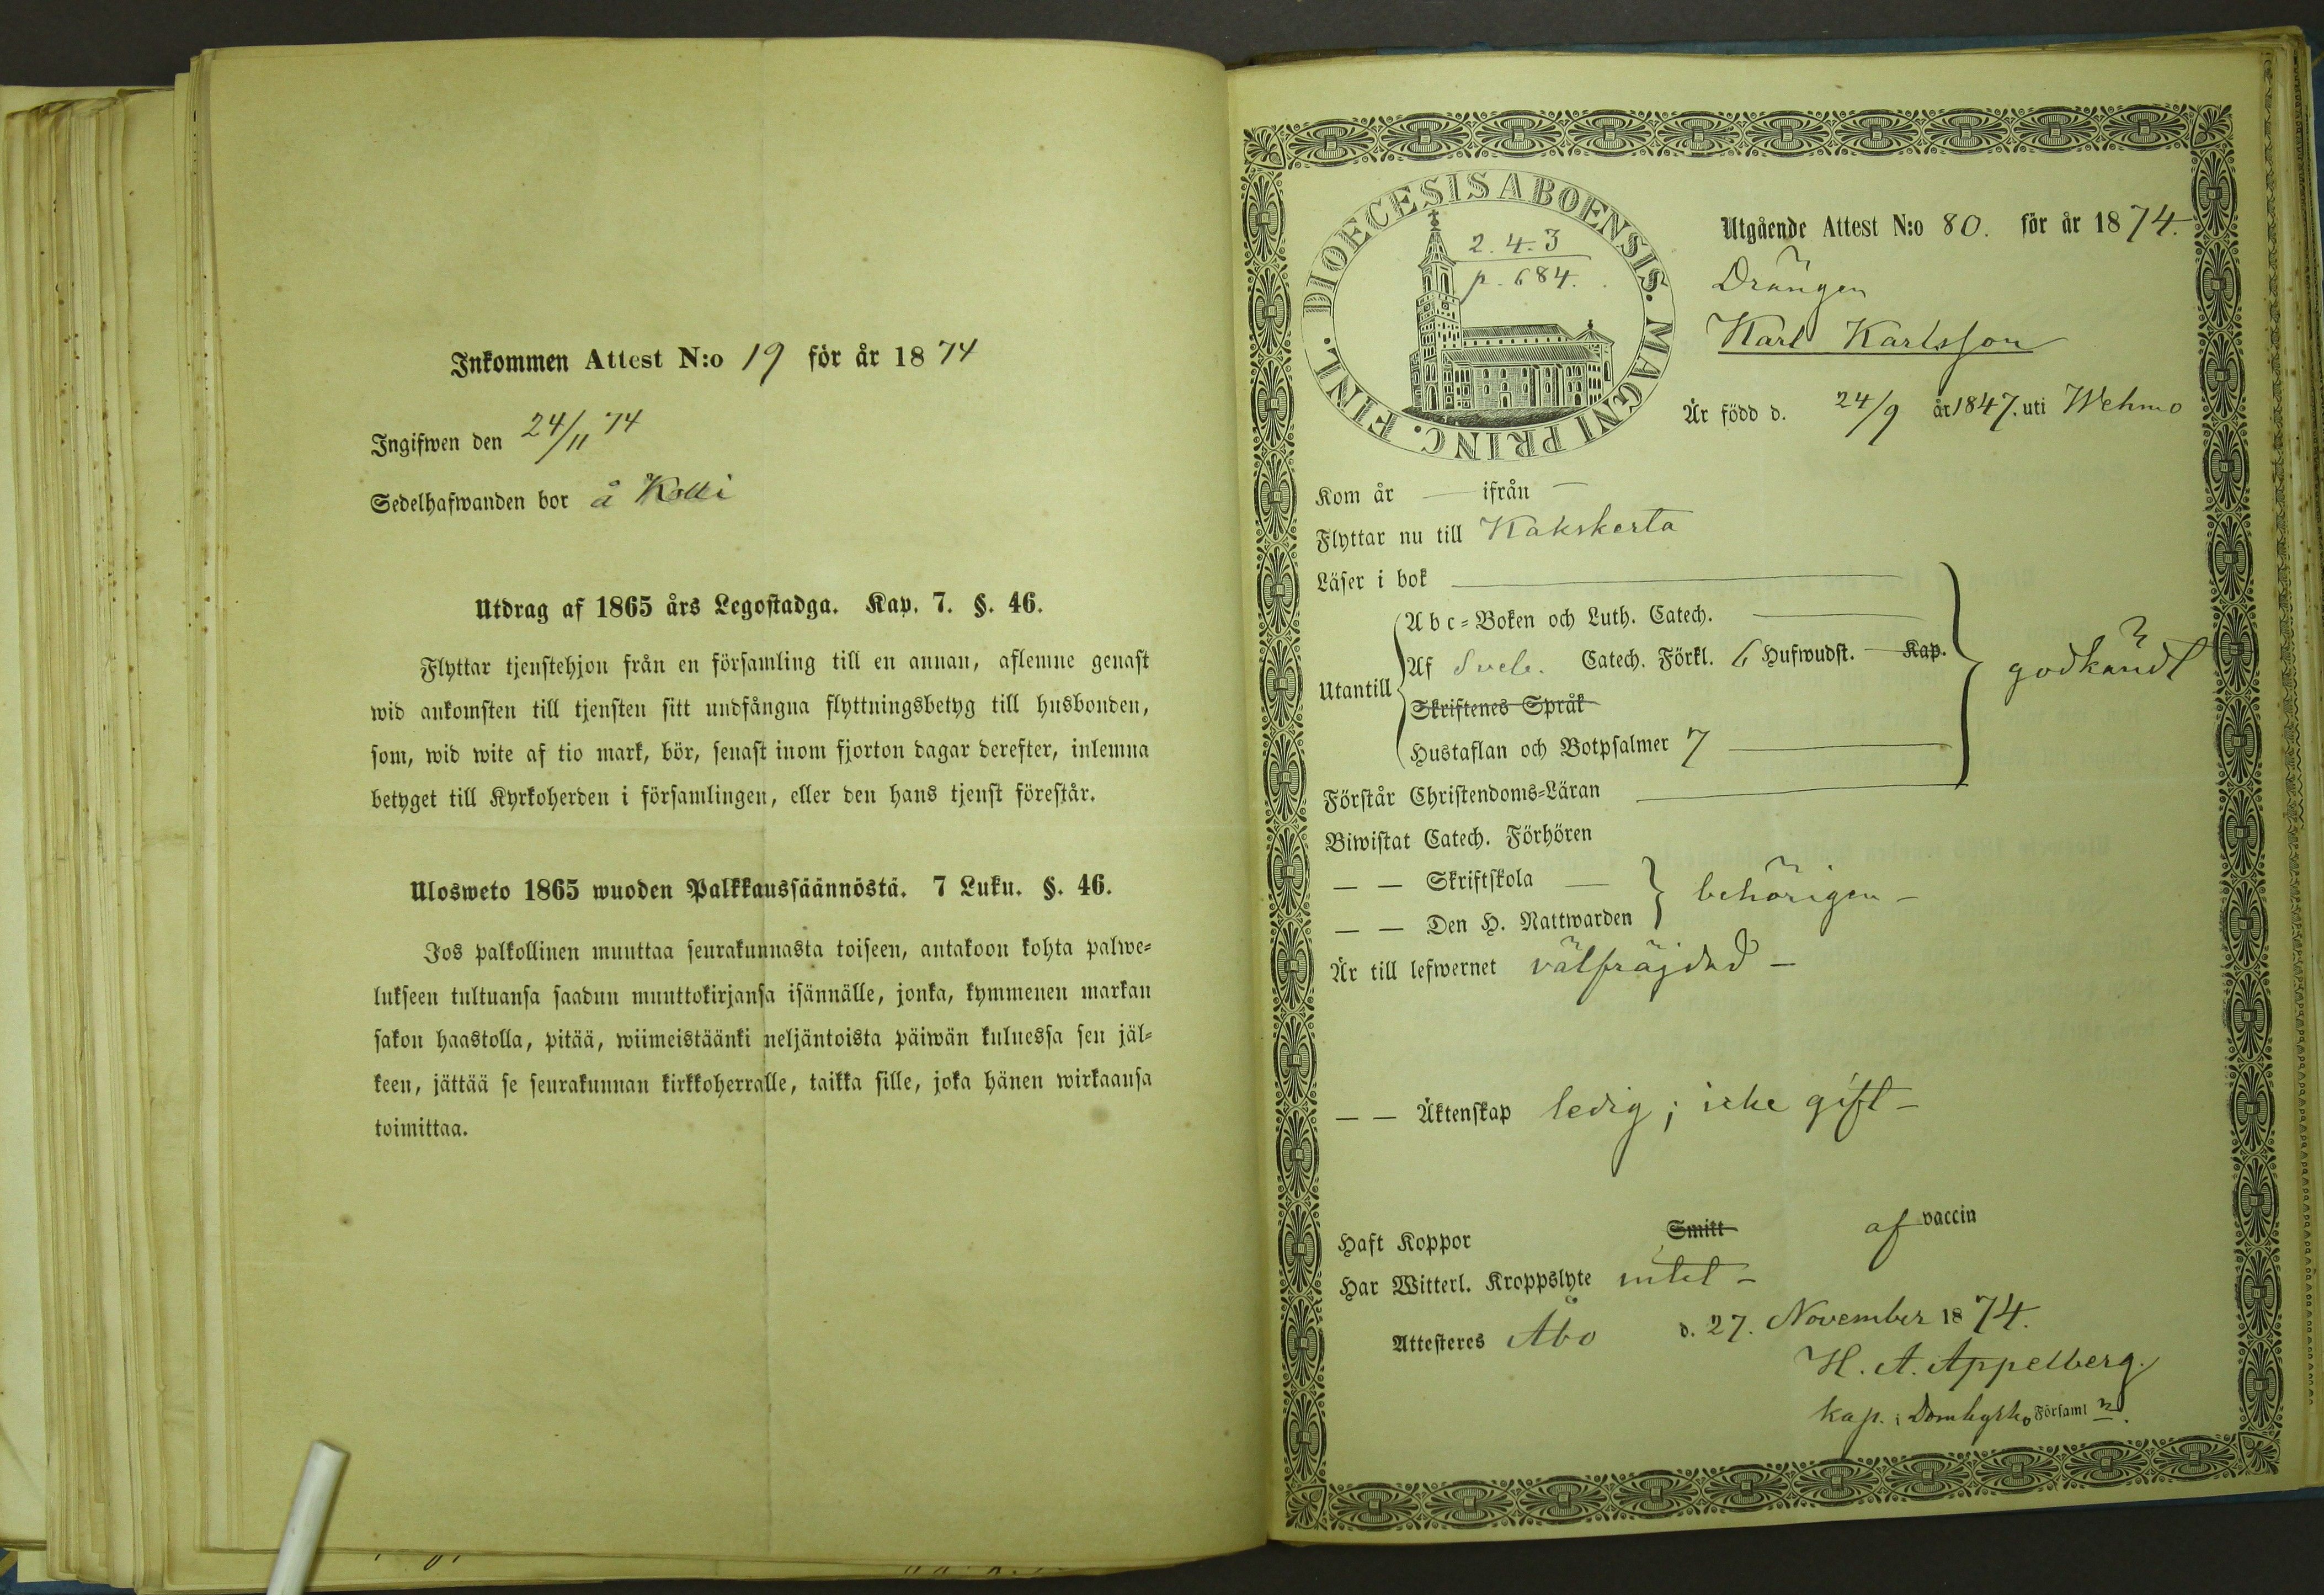 Inkommen Attest N:o 19 för år 1874
Ingifwen den 24/11 74
Sedelhafwanden bor å Kolli
Utdrag af 1865 års Legostadga. Kap. 7. §. 46.
Flyttar tjenstehjon från en församling till en annan, aflemne genast
wid ankomsten till tjensten sitt undfångna flyttningsbetyg till husbonden,
som, wid wite af tio mark, bör, senast inom fjorton dagar derefter, inlemna
betyget till Kyrkoherden i församlingen, eller den hans tjenst förestår.
Ulosweto 1865 wuoden Palkkaussäännöstä. 7 Luku. §. 46.
Jos palkollinen muuttaa seurakunnasta toiseen, antakoon kohta palwe=
lukseen tultuansa saadun muuttokirjansa isännälle, jonka, kymmenen markan
sakon haastolla, pitää, wiimeistäänki neljäntoista päiwän kuluessa sen jäl=
keen, jättää se seurakunnan kirkkoherralle, taikka sille, joka hänen wirkaansa
toimittaa.
DIOECESIS ABOENSIS. MAGNI PRINC. FINL.
2. 4. 3
p. 684.
Utgående Attest N:o 80. för år 1874.
Drängen
Karl Karlsson
Är född d. 24/9 år 1847. uti Wehmo
Kom år — ifrån —
Flyttar nu till Kakskerta
Läser i bok
Utantill
Abc=Boken och Luth. Catech.
Af Sveb. Catech. Förkl. 6 Hufwudst. Kap.
Skriftenes Språk
Hustaflan och Botpsalmer 7
godkändt
Förstår Christendoms=Läran
Biwistat Catech. Förhören
— — Skriftskola —
— — Den H. Nattwarden
behörigen —
Är till lefwernet välfräjdad —
— — Äktenskap ledig; icke gift —
Haft Koppor Smitt af vaccin
Har Witterl. Kroppslyte intet —
Attesteres Åbo d. 27. November 1874.
H. A. Appelberg.
Kap. i Domkyrko Församl n.